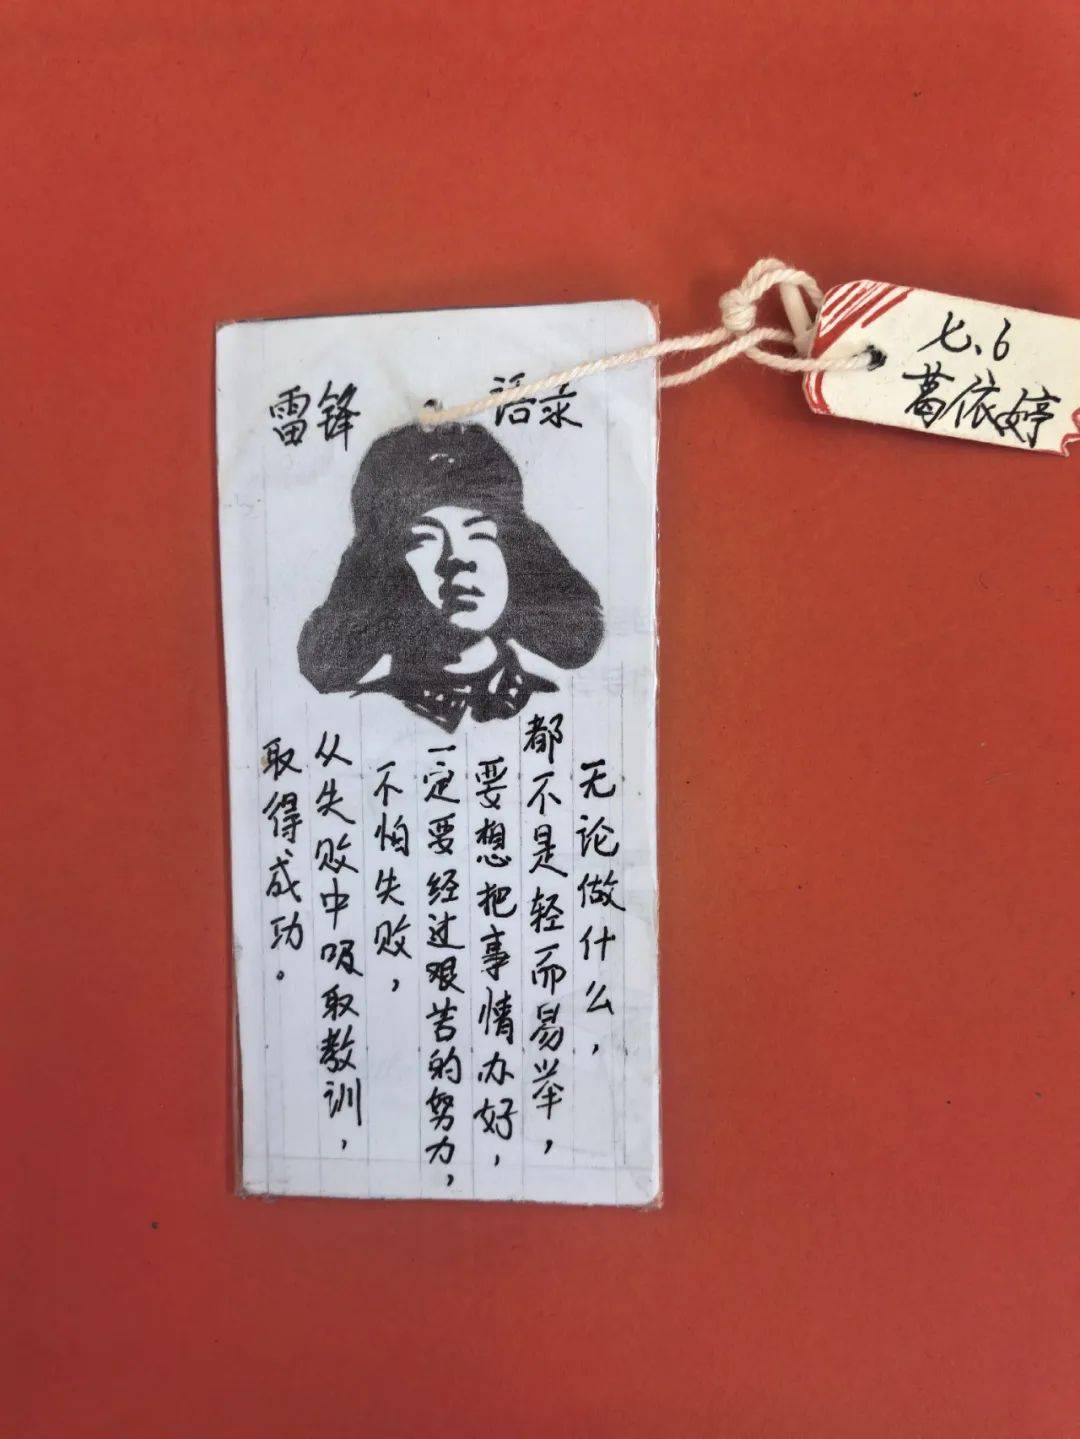 雷锋 语录
无论做什么，
都不是轻而易举，
要想把事情办好，
一定要经过艰苦的努力，
不怕失败，
从失败中吸取教训，
取得成功。
七.6
葛依婷